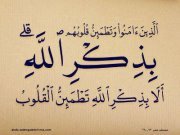 الَّذِينَ ءَامَنُوا وَتَطْمَئِنُّ قُلُوبُهُم
بِذِكْرِ اللَّهِ ۗ
أَلَا بِذِكْرِ اللَّهِ تَطْمَئِنُّ الْقُلُوبُ